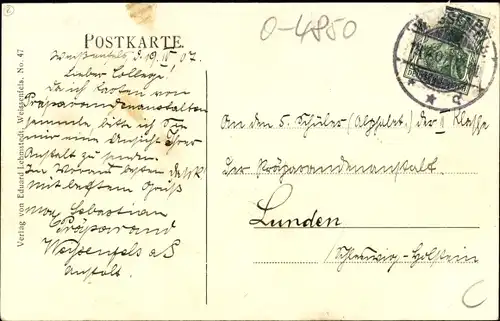 0-4850
POSTKARTE.
Weißenfels, d. 19. 07.
Lieber College!
Da ich Karten von
Präparandenanstalten
sammle, bitte ich Sie
mir eine Ansicht Ihrer
Anstalt zu senden.
Im Voraus besten Dank!
Mit bestem Gruß
Max Sebastian
Präparand
Weißenfels a/S
Anstalt.
Verlag von Eduard Lehmstedt, Weissenfels. No. 47
An den 5. Schüler (Alphabet.) der II Klasse
der Präparandenanstalt
Lunden
Schleswig-Holstein